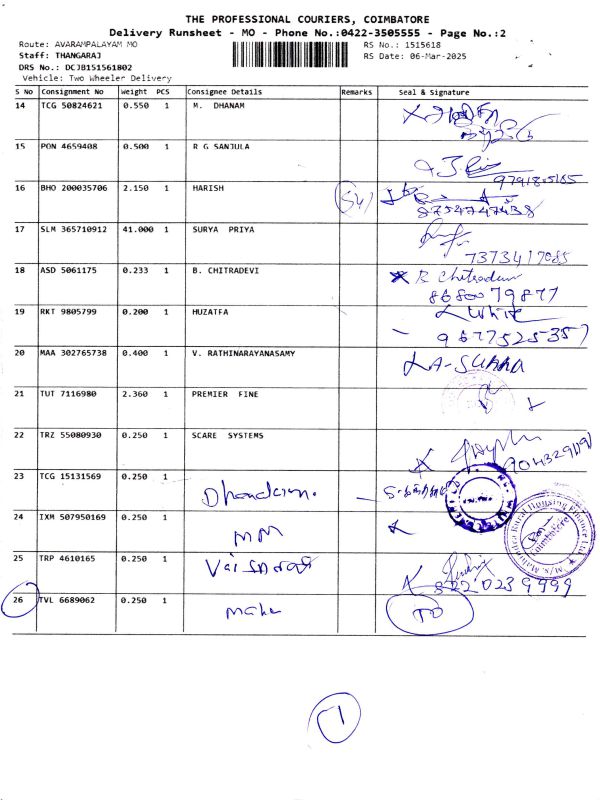 THE PROFESSIONAL COURIERS, COIMBATORE
Delivery Runsheet - MO - Phone No.:0422-3505555 - Page No.:2
Route: AVARAMPALAYAM MO RS No.: 1515618
Staff: THANGARAJ RS Date: 06-Mar-2025
DRS No.: DCJB151561802
Vehicle: Two Wheeler Delivery
S No Consignment No Weight PCS Consignee Details Remarks Seal & Signature
14 TCG 50824621 0.550 1 M. DHANAM
15 PON 4659408 0.500 1 R G SANJULA
16 BHO 200035706 2.150 1 HARISH
8754747438
17 SLM 365710912 41.000 1 SURYA PRIYA
7373417085
18 ASD 5061175 0.233 1 B. CHITRADEVI B Chitradevi
8680079877
19 RKT 9805799 0.200 1 HUZATFA
9677525357
20 MAA 302765738 0.400 1 V. RATHINARAYANASAMY
21 TUT 7116980 2.360 1 PREMIER FINE
22 TRZ 55080930 0.250 1 SCARE SYSTEMS
23 TCG 15131569 0.250 1
24 IXM 507950169 0.250 1 MM
Mahindra Rural Housing Finance Ltd.
Coimbatore
25 TRP 4610165 0.250 1
8220239999
26 TVL 6689062 0.250 1 Maha TO
1